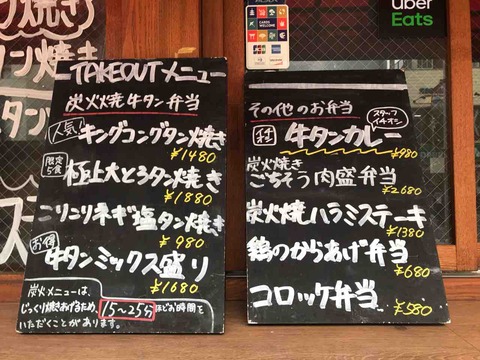 TAKEOUTメニュー
炭火焼牛タン弁当
人気! キングコングタン焼き
¥1480
限定5食 極上大とろタン焼き
¥1880
コリコリネギ塩タン焼き
¥980
お得 牛タンミックス盛り
¥1680
炭火メニューは、
じっくり焼きあげるため、15~25分ほどお時間を
いただくことがあります。
その他のお弁当
牛タンカレー
スタッフ
イチオシ
¥980
炭火焼き
ごちそう肉盛弁当
¥2680
炭火焼ハラミステーキ
¥1380
鶏のからあげ弁当
¥680
コロッケ弁当
¥580
Uber
Eats